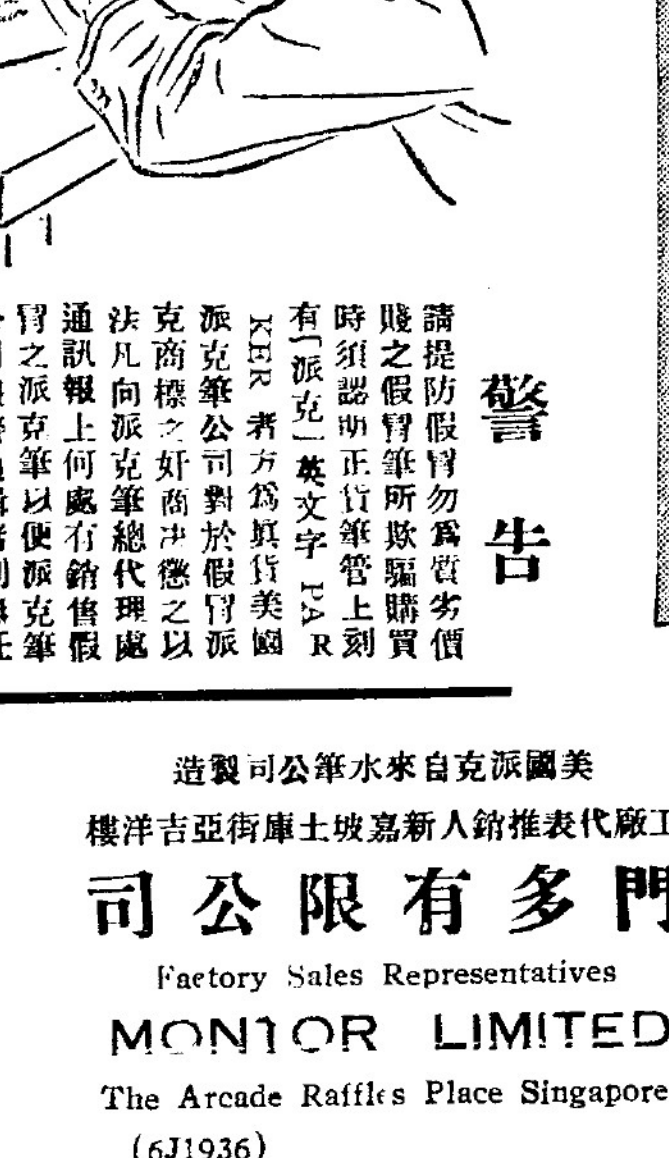 警告
請提防假冒勿爲質劣價
賤之假冒筆所欺騙購買
時須認明正貨筆管上刻
有「派克」英文字 PAR
KER 者方爲真貨美國
派克筆公司對於假冒派
克商標之奸商决懲之以
法凡向派克筆總代理處
通訊報上何處有銷售假
冒之派克筆以便派克筆
美國派克自來水筆公司製造
工廠代表推銷人新嘉坡土庫街亞吉洋樓
門多有限公司
Factory Sales Representatives
MONTOR LIMITED
The Arcade Raffles Place Singapore
(6J1936)